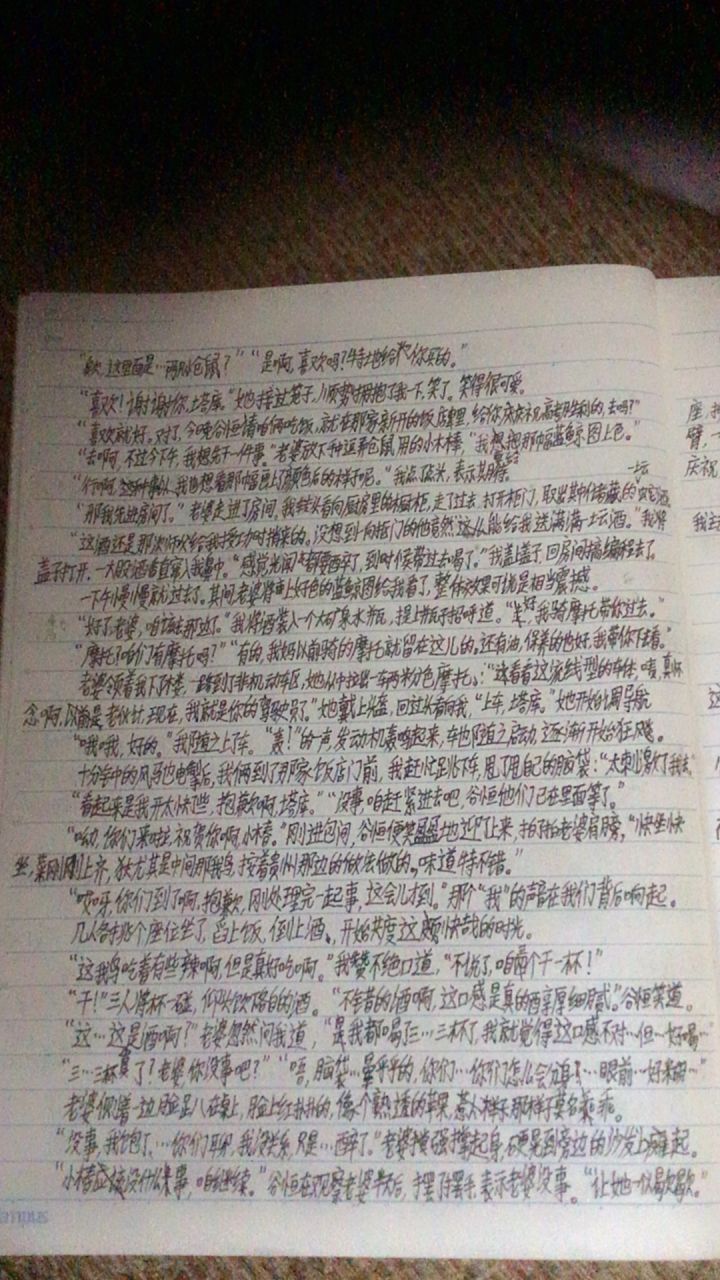 "欸,这里面是…两只仓鼠?""是啊,喜欢吗?特地给你买的。"
"喜欢!谢谢你,塔库。"她接过笼子,顺势拥抱了我一下,笑了。笑得很可爱。
"喜欢就好。对了,今晚谷恒请咱俩吃饭,就在那家新开的饭店里,给你庆祝高考胜利的,去吗?"
"去啊,不过今下午,我想先干一件事。"老婆放下种逗弄仓鼠用的小木棒,"我想把那幅蓝鲸图上色。"
"行啊,我也想看那幅画上了颜色后的样子呢。"我点点头,表示其期待。
"那我先进房间了。"老婆走进了房间,我转头看向厨房里的橱柜,走了过去,打开柜门,取出其中储藏的一坛蛇酒
"这酒还是那次师父给我接功时捎来的,没想到一向抠门的他竟然这么能给我送满满一坛酒。"我将
盖子打开,一大股酒香直窜入我鼻中。"感觉光闻上去都要醉了,到时候带过去喝了。"我盖上盖子,回房间搞编程去了。
一下午慢慢就过去了。其间,老婆将画上好色的蓝鲸图给我看了,整体效果可说是相当震撼。
"好了老婆,咱该去那边了。"我将酒装入一个大矿泉水瓶,提上瓶子招呼道。"好,我骑摩托带你过去。"
"摩托?咱们有摩托吗?""有的,我妈以前骑的摩托就留在这儿的,还有油,保养的也好,我带你下去看。"
老婆领着我下了楼,一路到了非机动车区,她从中拉出一车两米分色摩托:"这看看这流线型的车体,唛,真怀
念啊,以前是老伙计,现在,我就是你的驾驶员了。"她戴上头盔,回过头看向我,"上车,塔库。"她开始调导航
"哦哦,好的。"我随之上了车。"轰!"的一声,发动机轰鸣起来,车也随之启动,逐渐开始狂飚。
十分钟的风马也电掣后,我俩到了那家饭店门前,我赶忙足兆下车,甩了甩自己的脑袋:"太刺激了我去"
"看起来是我开太快了些,抱歉啊,塔库。""没事,咱赶紧进去吧,谷恒他们已在里面等了。"
"哟,你们来啦,祝贺你啊,小椿。"刚进包间,谷恒便笑盈盈地迎了上来,拍拍老婆肩膀,"快坐快
坐,菜刚刚上齐,尤其是中间那我鸟,按着贵州那边的做法做的,味道特不错。"
"哎呀,你们到了啊,抱歉,刚处理完一起事,这会儿才到。"那个"我"的声音在我们背后响起。
几人各挑个座位坐了,舀上饭,倒上酒,开始共度这颇快哉的时光。
"这我鸟吃着有些辣啊,但是真好吃啊。"我赞不绝口道,"不说了,咱几个干一杯!"
"干!"三人将杯一碰,仰头饮隔白的酒。"不错的酒啊,这口感是真的酉享厚细腻。"谷恒笑道。
"这…这是酒啊?"老婆忽然问我道,"是我都喝了三…三杯了,我就觉得这口感不对…但…好喝…"
"三…三杯了?老婆你没事吧?""唔,脑袋…晕乎乎的,你们…你们怎么会分身了…眼前…好米胡…"
老婆倒着一边脸趴在桌上,脸上红扑扑的,像个熟透的苹果,那样乖。
"没事,我饱了…你们聊,我没关系,只是…西卒了。"老婆接强撑起身,硬是到旁边的沙发上瘫起。
"小椿应该没什么事,咱继续。"谷恒在观察老婆半天后,摆了摆手,表示老婆没事。"让她一个人歇歇。"